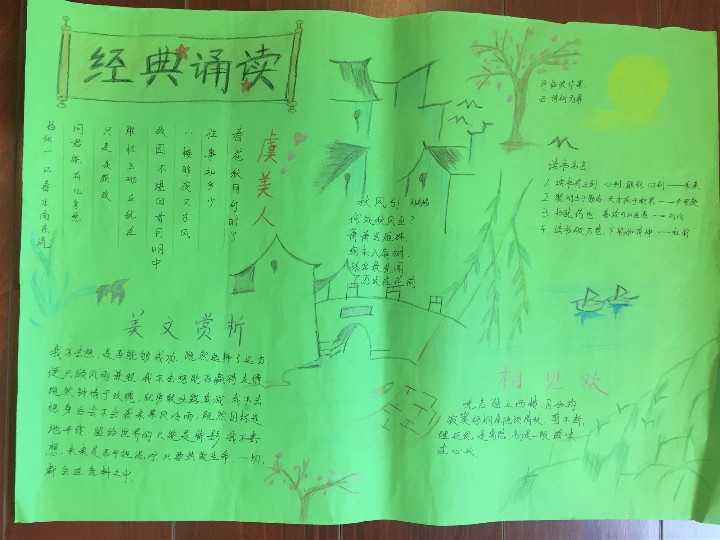 经典诵读
虞美人
春花秋月何时了
往事知多少
小楼昨夜又东风
故国不堪回首月明中
雕栏玉砌应犹在
只是朱颜改
问君能有几多愁
恰似一江春水向东流
美文赏析
我不去想,是否能够成功,既然选择了远方
便只顾风雨兼程,我不去想能否赢得爱情
既然钟情于玫瑰,就勇敢吐露真诚,我不去
想身后会不会袭来寒风冷雨,既然目标是
地平线,留给世界的只能是背影,我不去
想,未来是否平坦泥泞,只要热爱生命一切,
都会在意料之中.
秋风引
何处秋风至?
萧萧送雁群
朝来入庭树
孤客最先闻
月
云
读书名言
1. 读书有三到 心到,眼到,口到——朱熹
2. 聪明出于勤奋,天才在于积累——华罗庚
3. 书犹药也,善读可以医愚——刘向
4. 读书破万卷,下笔如有神——杜甫
相见欢
无言独上西楼,月如钩
寂寞梧桐深院锁清秋,剪不断,
理还乱,是离愁,别是一般滋味
在心头